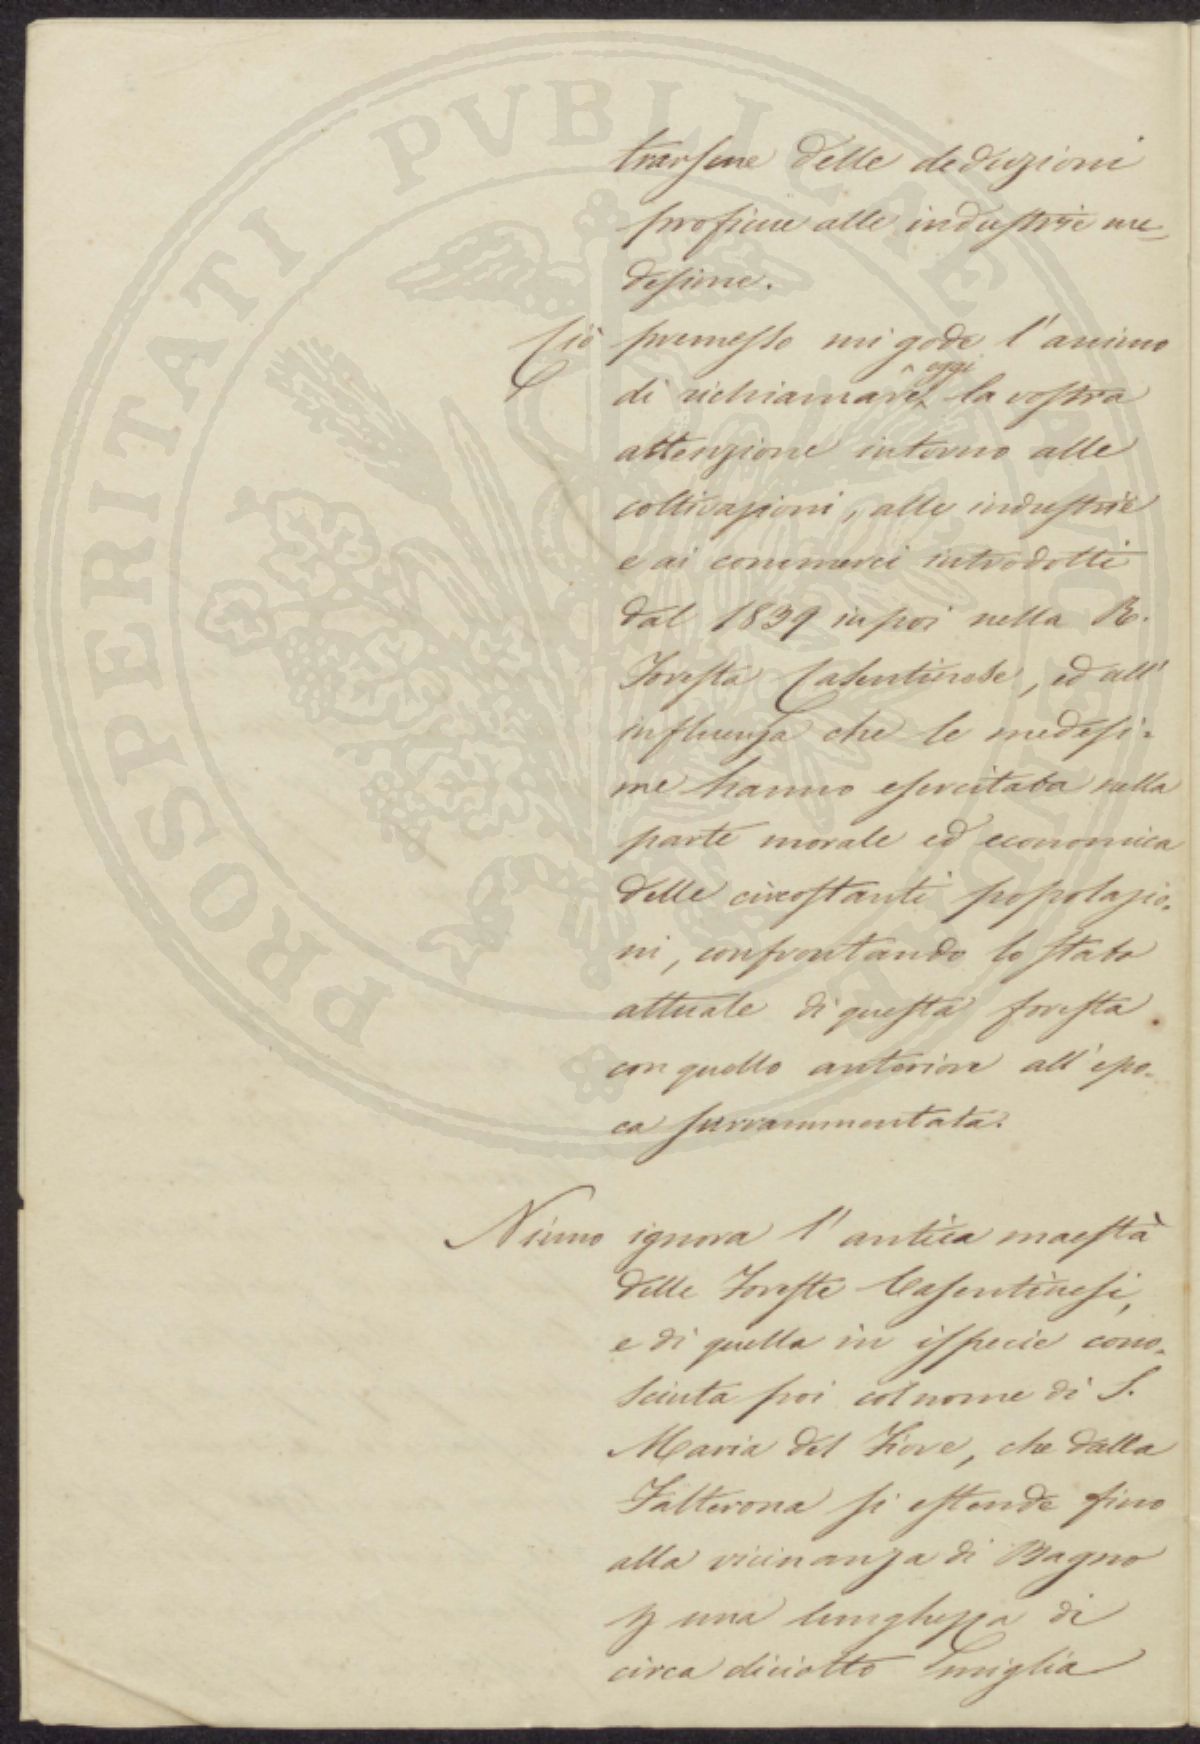 trarsene delle deduzioni
proficue alle industrie me-
desime.
Ciò premesso mi gode l'animo
di richiamare oggi la vostra
attenzione intorno alle
coltivazioni, alle industrie
e ai commerci introdotti
dal 1839 in poi nella R.
Foresta Casentinese, ed all'
influenza che le medesi-
me hanno esercitata nella
parte morale ed economica
delle circostanti popolazio-
ni, confrontando lo stato
attuale di questa foresta
con quello anteriore all'epo-
ca surrammentata.
Niuno ignora l'antica maestà
delle Foreste Casentinesi,
e di quella in ispecie cono-
sciuta poi col nome di S.
Maria del Fiore, che dalla
Falterona si estende fino
alla vicinanza di Bagno
p una lunghezza di
circa diciotto miglia
PROSPERITATI PVBLICAE AVGENDAE